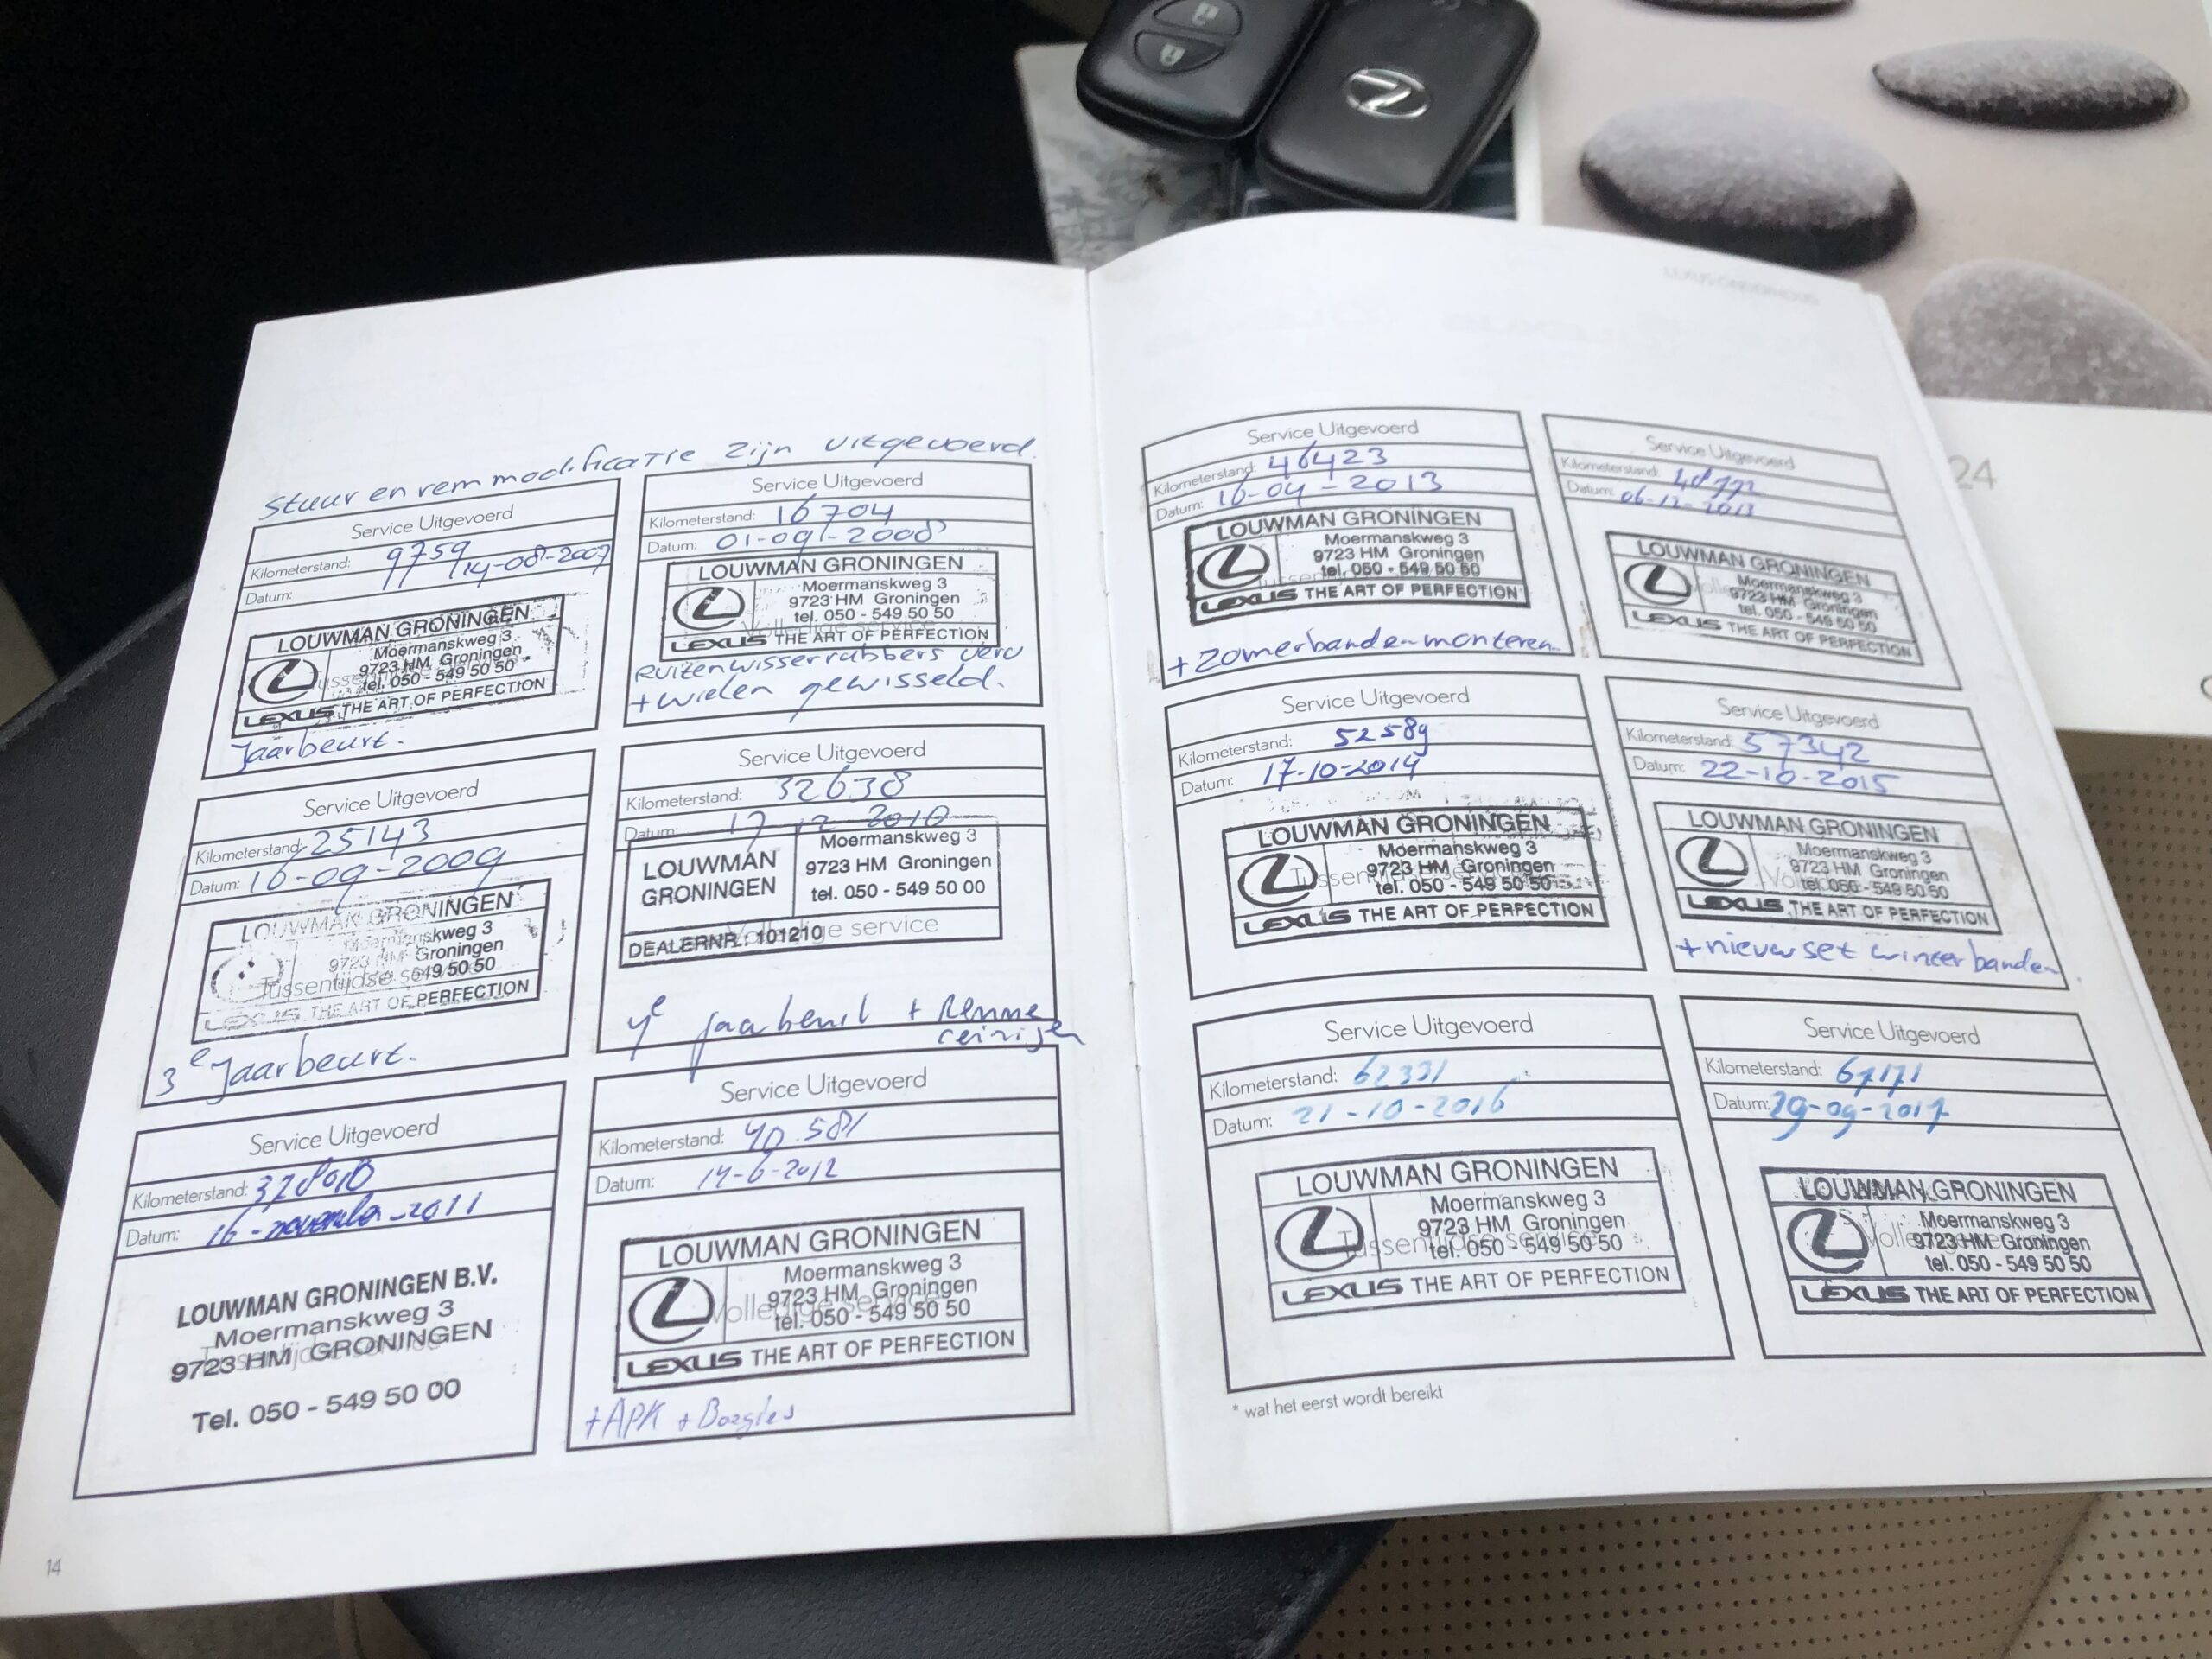 stuur en rem modificatie zijn uitgevoerd.
Service Uitgevoerd
Kilometerstand: 9759
Datum: 14-08-2007
LOUWMAN GRONINGEN
Moermanskweg 3
9723 HM Groningen
tel. 050 - 549 50 50
LEXUS THE ART OF PERFECTION
Jaarbeurt.
Service Uitgevoerd
Kilometerstand: 16704
Datum: 01-09-2008
LOUWMAN GRONINGEN
Moermanskweg 3
9723 HM Groningen
tel. 050 - 549 50 50
Volledige service
LEXUS THE ART OF PERFECTION
ruitenwisserrubbers verv
+ wielen gewisseld.
Service Uitgevoerd
Kilometerstand: 25143
Datum: 16-09-2009
LOUWMAN GRONINGEN
Moermanskweg 3
9723 HM Groningen
Tussentijdse service
549 50 50
LEXUS THE ART OF PERFECTION
3e Jaarbeurt.
Service Uitgevoerd
Kilometerstand: 32638
Datum: 17 12 2010
LOUWMAN GRONINGEN
Moermanskweg 3
9723 HM Groningen
tel. 050 - 549 50 00
Volledige service
DEALERNR.: 101210
4e jaarbeurt + Remme
reinigen
Service Uitgevoerd
Kilometerstand:
Datum: 16-november-2011
LOUWMAN GRONINGEN B.V.
Moermanskweg 3
9723 HM GRONINGEN
Tussentijdse service
Tel. 050 - 549 50 00
Service Uitgevoerd
Kilometerstand: 40.581
Datum: 14-6-2012
LOUWMAN GRONINGEN
Moermanskweg 3
9723 HM Groningen
Volledige service
tel. 050 - 549 50 50
LEXUS THE ART OF PERFECTION
+ APK +
14
Service Uitgevoerd
Kilometerstand: 46423
Datum: 16-04-2013
LOUWMAN GRONINGEN
Moermanskweg 3
9723 HM Groningen
tel. 050 - 549 50 50
LEXUS THE ART OF PERFECTION
+ zomerbanden monteren.
Service Uitgevoerd
Kilometerstand:
Datum: 06-12-2013
LOUWMAN GRONINGEN
Moermanskweg 3
9723 HM Groningen
tel. 050 - 549 50 50
LEXUS THE ART OF PERFECTION
Service Uitgevoerd
Kilometerstand: 52589
Datum: 17-10-2014
LOUWMAN GRONINGEN
Moermanskweg 3
9723 HM Groningen
tel. 050 - 549 50 50
LEXUS THE ART OF PERFECTION
Service Uitgevoerd
Kilometerstand: 57342
Datum: 22-10-2015
LOUWMAN GRONINGEN
Moermanskweg 3
9723 HM Groningen
tel. 050 - 549 50 50
LEXUS THE ART OF PERFECTION
+ nieuw set winterbanden
Service Uitgevoerd
Kilometerstand: 62331
Datum: 21-10-2016
LOUWMAN GRONINGEN
Moermanskweg 3
9723 HM Groningen
Tussentijdse service
tel. 050 - 549 50 50
LEXUS THE ART OF PERFECTION
Service Uitgevoerd
Kilometerstand: 67171
Datum: 29-09-2017
LOUWMAN GRONINGEN
Moermanskweg 3
9723 HM Groningen
tel. 050 - 549 50 50
LEXUS THE ART OF PERFECTION
* wat het eerst wordt bereikt
24